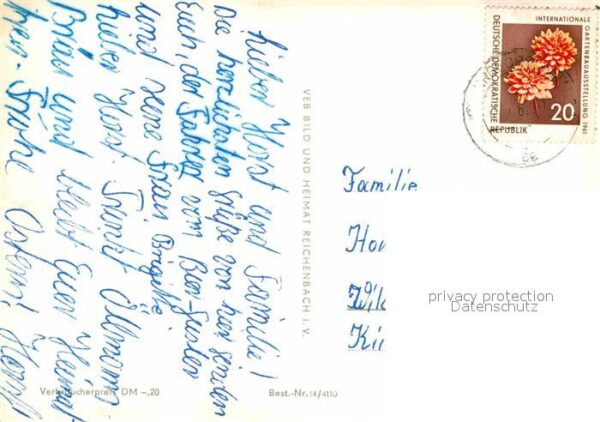 Lieber Horst und Familie!
Die herzlichsten Grüße von hier senden
Euch, der Fahrer vom Bier-
und seine Frau Brigitte
Lieber Horst. Trinkt
Bräu und bleibt Euer Heimat
Frohe Ostern!
VEB BILD UND HEIMAT REICHENBACH i. V.
Verbraucherpreis DM -,20
Best.-Nr. 14/4110
INTERNATIONALE
GARTENBAUAUSSTELLUNG 1961
DEUTSCHE DEMOKRATISCHE
REPUBLIK
20
Familie
Hor
Wil
Ki
privacy protection
Datenschutz